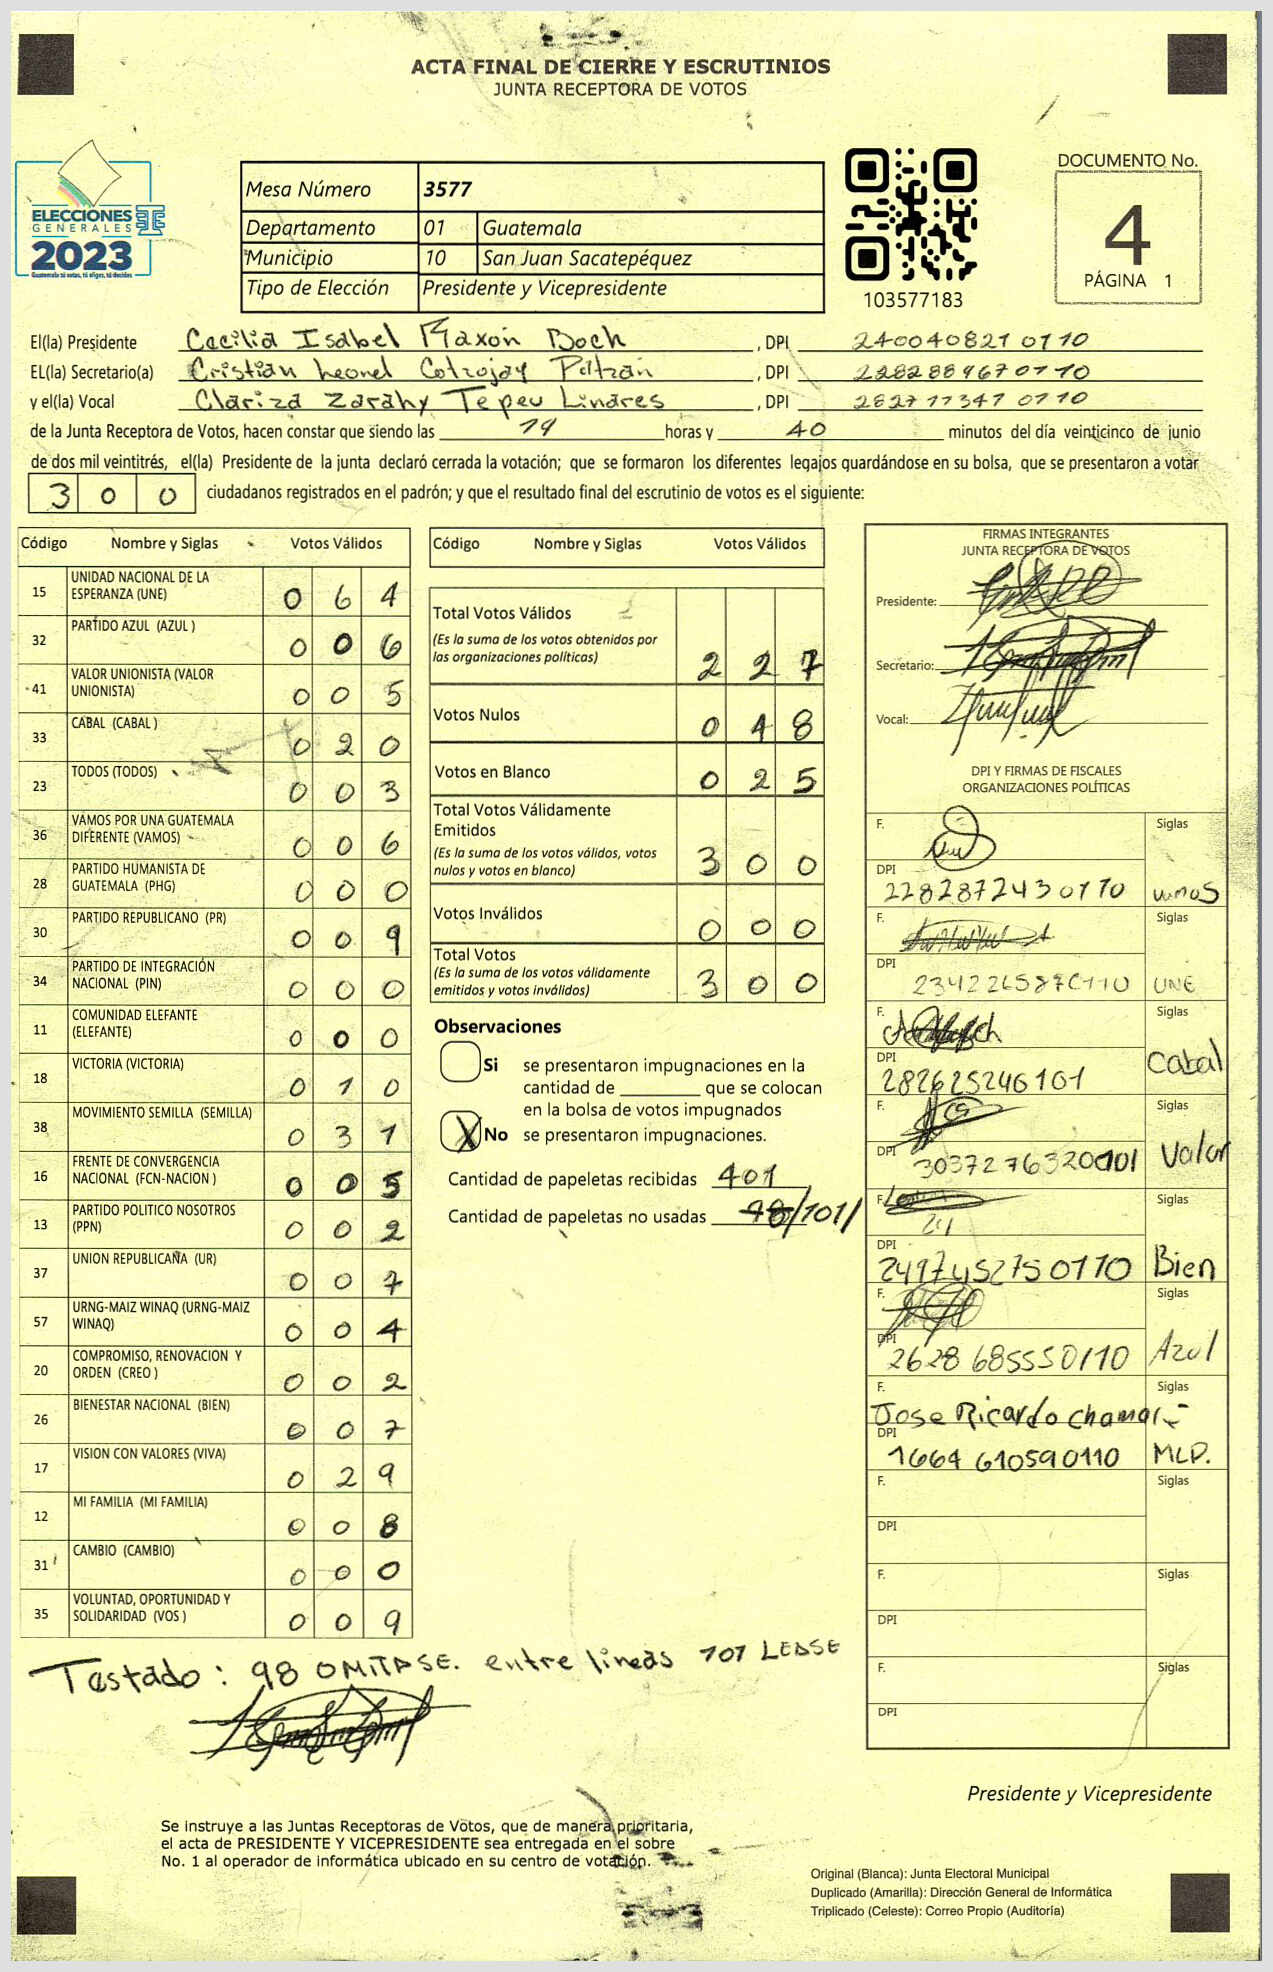 ACTA FINAL DE CIERRE Y ESCRUTINIOS
JUNTA RECEPTORA DE VOTOS
ELECCIONES
GENERALES
2023
Guatemala tú votas, tú eliges, tú decides
Mesa Número 3577
Departamento 01 Guatemala
Municipio 10 San Juan Sacatepéquez
Tipo de Elección Presidente y Vicepresidente
103577183
DOCUMENTO No.
4
PÁGINA 1
El(la) Presidente Cecilia Isabel Raxón Boch, DPI 240040821 0110
EL(la) Secretario(a) Cristian Leonel Cotzojay Patzán, DPI 228288967 0110
y el(la) Vocal Clariza Zarahy Tepeu Linares, DPI 282711341 0110
de la Junta Receptora de Votos, hacen constar que siendo las 19 horas y 40 minutos del día veinticinco de junio
de dos mil veintitrés, el(la) Presidente de la junta declaró cerrada la votación; que se formaron los diferentes legajos guardándose en su bolsa, que se presentaron a votar
300 ciudadanos registrados en el padrón; y que el resultado final del escrutinio de votos es el siguiente:
Código Nombre y Siglas Votos Válidos
15 UNIDAD NACIONAL DE LA ESPERANZA (UNE) 0 6 4
32 PARTIDO AZUL (AZUL ) 0 0 6
41 VALOR UNIONISTA (VALOR UNIONISTA) 0 0 5
33 CABAL (CABAL ) 0 2 0
23 TODOS (TODOS) 0 0 3
36 VAMOS POR UNA GUATEMALA DIFERENTE (VAMOS) 0 0 6
28 PARTIDO HUMANISTA DE GUATEMALA (PHG) 0 0 0
30 PARTIDO REPUBLICANO (PR) 0 0 9
34 PARTIDO DE INTEGRACIÓN NACIONAL (PIN) 0 0 0
11 COMUNIDAD ELEFANTE (ELEFANTE) 0 0 0
18 VICTORIA (VICTORIA) 0 1 0
38 MOVIMIENTO SEMILLA (SEMILLA) 0 3 1
16 FRENTE DE CONVERGENCIA NACIONAL (FCN-NACION ) 0 0 5
13 PARTIDO POLITICO NOSOTROS (PPN) 0 0 2
37 UNION REPUBLICANA (UR) 0 0 7
57 URNG-MAIZ WINAQ (URNG-MAIZ WINAQ) 0 0 4
20 COMPROMISO, RENOVACION Y ORDEN (CREO ) 0 0 2
26 BIENESTAR NACIONAL (BIEN) 0 0 7
17 VISION CON VALORES (VIVA) 0 2 9
12 MI FAMILIA (MI FAMILIA) 0 0 8
31 CAMBIO (CAMBIO) 0 0 0
35 VOLUNTAD, OPORTUNIDAD Y SOLIDARIDAD (VOS ) 0 0 9
Código Nombre y Siglas Votos Válidos
Total Votos Válidos 2 2 7
(Es la suma de los votos obtenidos por
las organizaciones políticas)
Votos Nulos 0 4 8
Votos en Blanco 0 2 5
Total Votos Válidamente
Emitidos 3 0 0
(Es la suma de los votos válidos, votos
nulos y votos en blanco)
Votos Inválidos 0 0 0
Total Votos 3 0 0
(Es la suma de los votos válidamente
emitidos y votos inválidos)
Observaciones
Si se presentaron impugnaciones en la
cantidad de ________ que se colocan
en la bolsa de votos impugnados
X No se presentaron impugnaciones.
Cantidad de papeletas recibidas 401
Cantidad de papeletas no usadas 98/101/
FIRMAS INTEGRANTES
JUNTA RECEPTORA DE VOTOS
Presidente:
Secretario:
Vocal:
DPI Y FIRMAS DE FISCALES
ORGANIZACIONES POLÍTICAS
F. Siglas
DPI 2282872430110 vamos
F. Siglas
DPI UNE
F. Siglas
DPI 282625246101 Cabal
F. Siglas
DPI 3037276320101 Valor
F. Siglas
DPI 2497452750110 Bien
F. Siglas
DPI 2628685550110 Azul
F. Jose Ricardo Chamal Siglas
DPI 1664 610590110 MLP.
F. Siglas
DPI
F. Siglas
DPI
F. Siglas
DPI
Testado: 98 OMITASE. entre lineas 101 LEASE
Presidente y Vicepresidente
Se instruye a las Juntas Receptoras de Votos, que de manera prioritaria,
el acta de PRESIDENTE Y VICEPRESIDENTE sea entregada en el sobre
No. 1 al operador de informática ubicado en su centro de votación.
Original (Blanca): Junta Electoral Municipal
Duplicado (Amarilla): Dirección General de Informática
Triplicado (Celeste): Correo Propio (Auditoría)